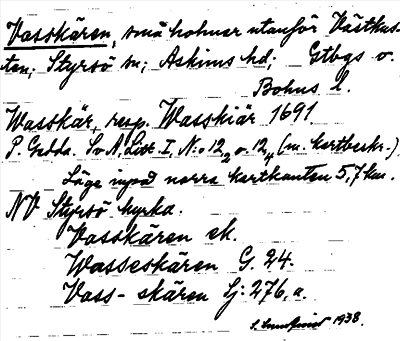 Vasskären, små holmar utanför Västkus-
ten, Styrsö sn; Askims hd; Gtbgs o.
Bohus l.
Wasskär, resp. Wasskiär 1691.
P. Gedda. Sv A, Litt. I, N:o 12₂ o. 12₄ (m. kartbeskr.)
Läge invid norra kartkanten 5,7 km.
NV Styrsö kyrka.
Vasskären ek.
Wasseskären G. 24.
Vass-skären Lj: 276, a.
1938.